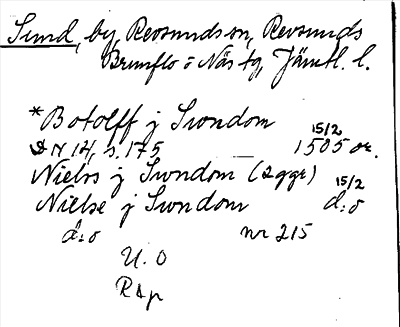 Sund, by, Revsunds sn, Revsunds
Brunflo o Näs tg, Jämtl. l.
*Botolff j Swndom 15/2
DN 14, s. 175 — 1505 or.
Nielss j Swndom (2 ggr) 15/2
Nielse j Swndom d:o
d:o nr 215
U. O
Rap